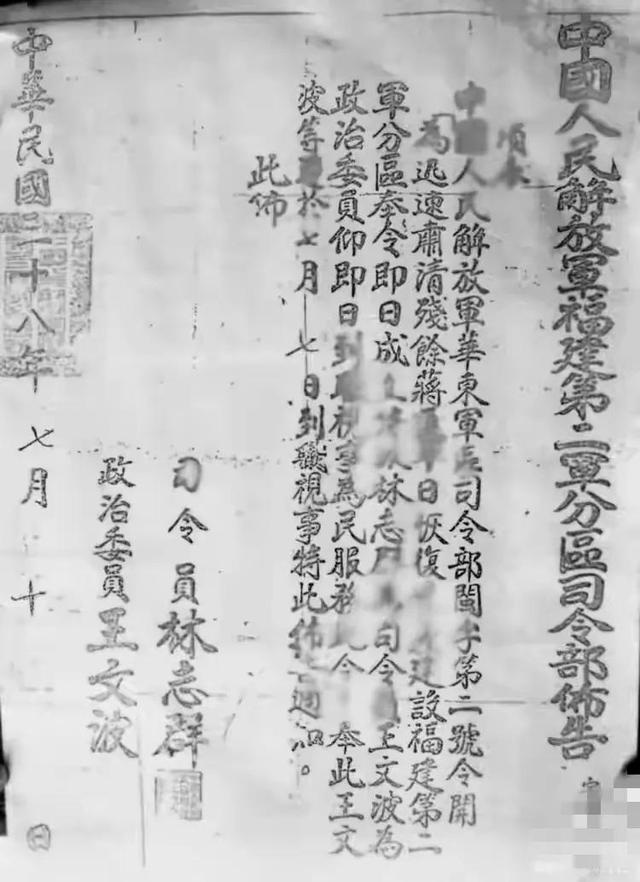 中國人民解放軍福建第二軍分區司令部佈告
中國人民解放軍華東軍區司令部閩字第二號令開
為迅速肅清殘餘蔣日恢復建設福建第二
軍分區奉令即日成林志司令員王文波為
政治委員仰即日到職視事為民服務此令 奉此王文
波等於七月七日到職視事特此佈告週知。
此佈
司令員林志群
政治委員王文波
中華民國三十八年七月十日